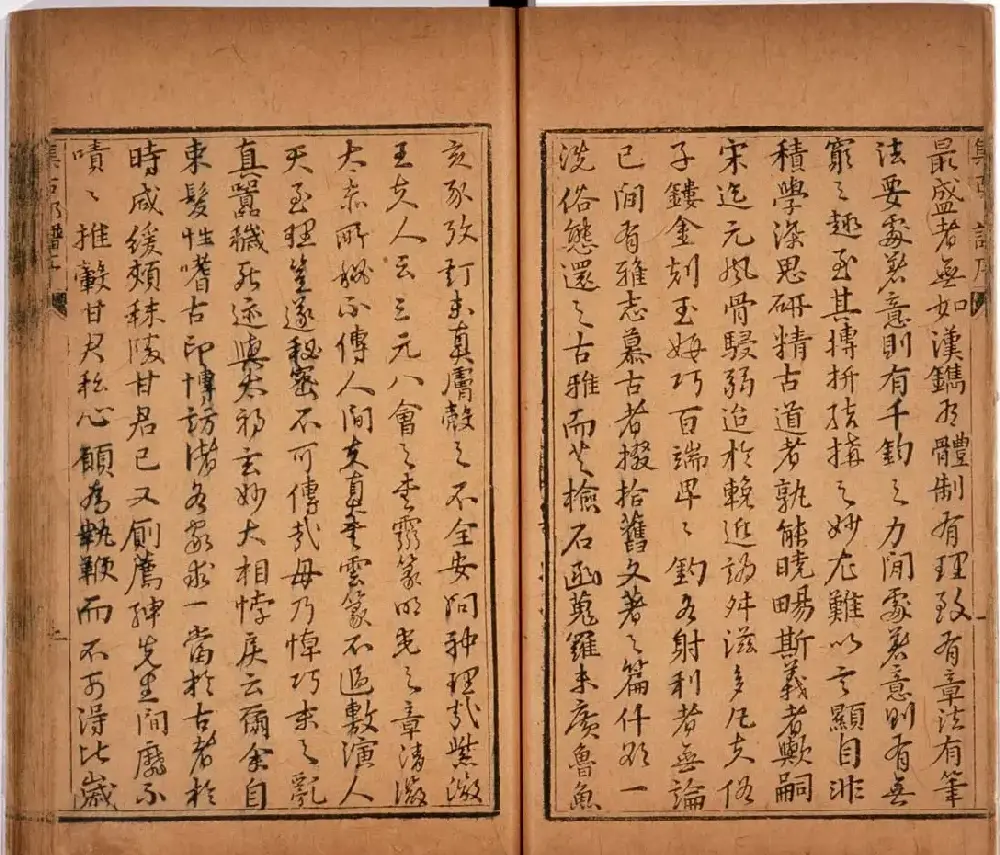 最盛者無如漢鐫有體制有理致有章法有筆
法要處著意則有千鈞之力閒處著意則有無
窮之趣至其摶捖結搆之妙尤難以言顯自非
積學深思研精古道者孰能曉暢斯義者歟嗣
宋迄元風骨駸弱迨於輓近訛舛滋多凡夫俗
子鏤金刻玉娒巧百端畀之釣名射利者無論
已間有雅志慕古者掇拾舊文著之篇什欲一
洗俗態還之古雅而芝檢石函蒐羅未廣魯魚
亥豕攷訂未真膚殼之不全安問神理哉紫微
王夫人云三元八會之書霛篆明光之章清微
太赤所秘不傳人間夫真書雲篆不過敷演人
天至理豈遂秘密不可傳哉毋乃悼巧末之亂
真囂穢死迹與太初玄妙大相悖戾云爾余自
束髮性嗜古印博訪諸名家求一當於古者於
時咸緩頰秣陵甘君已又劘薦紳先生間靡不
嘖嘖推轂甘君私心願為執鞭而不可得比歲